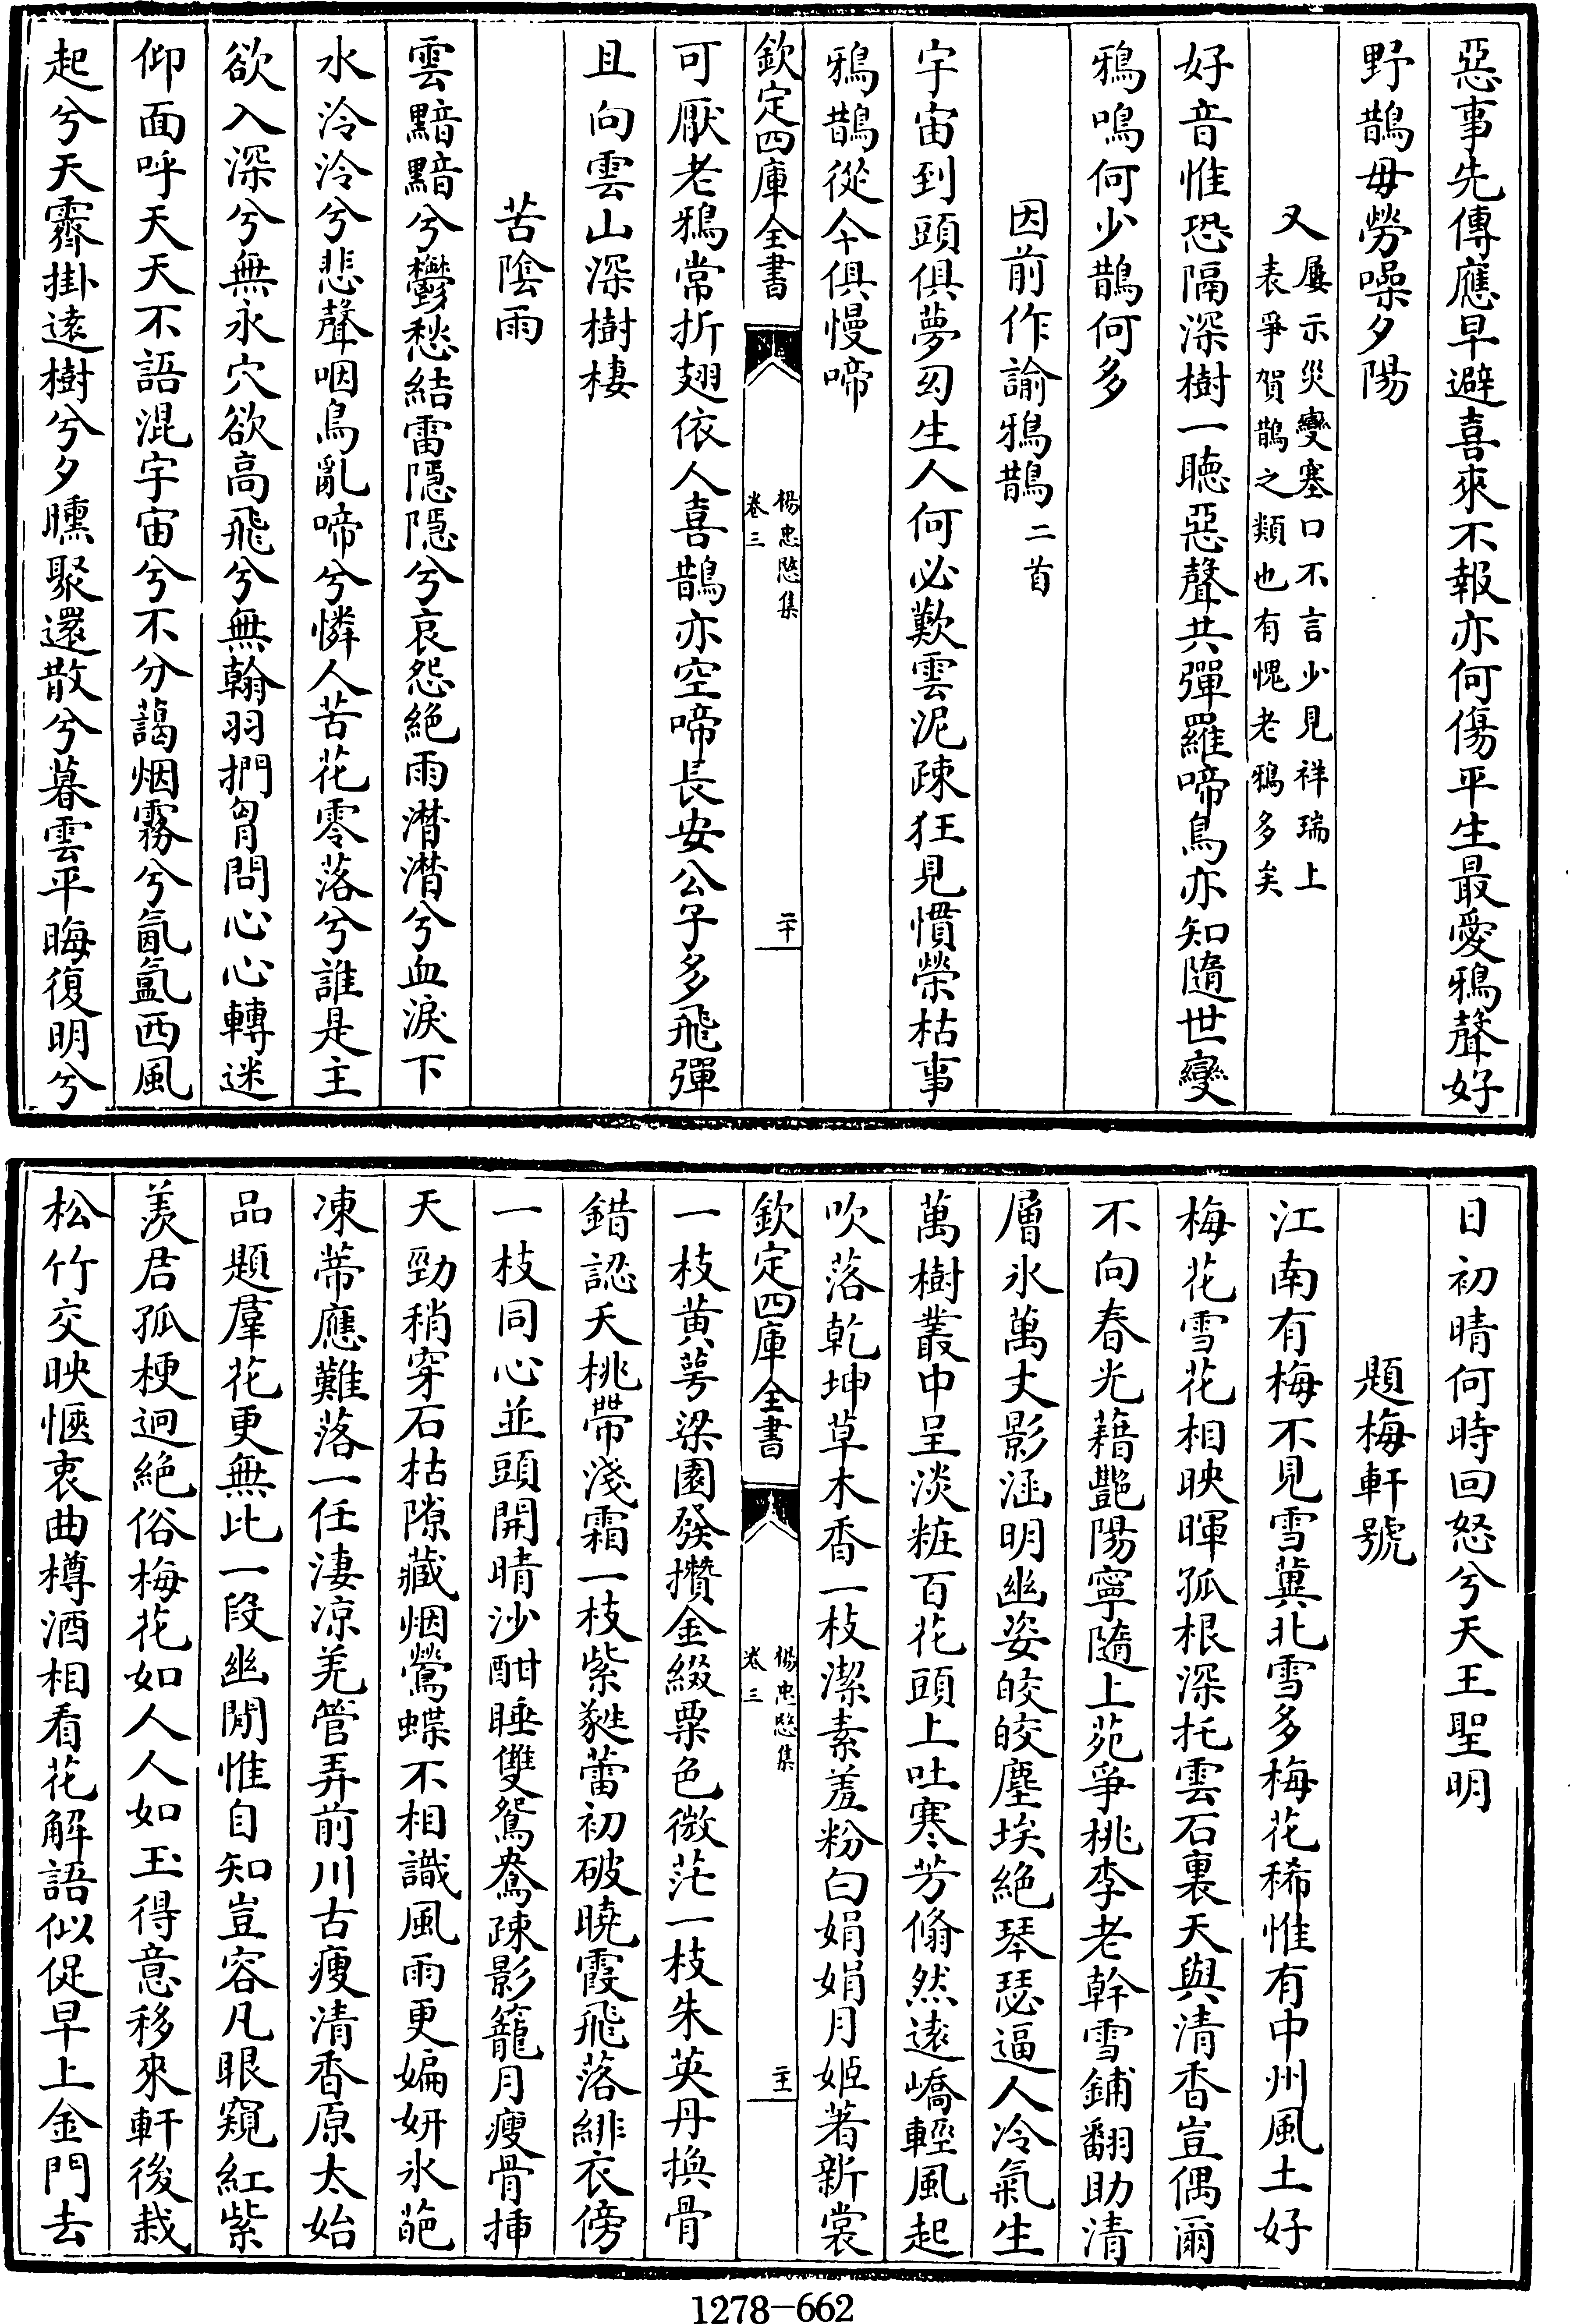 惡事先傳應早避喜來不報亦何傷平生最愛鴉聲好
野鵲毋勞噪夕陽
又屢示災變塞口不言少見祥瑞上
表爭賀鵲之類也有愧老鴉多矣
好音惟恐隔深樹一聴惡聲共彈羅啼鳥亦知隨世變
鴉鳴何少鵲何多
因前作諭鴉鵲二首
宇宙到頭俱夢幻生人何必歎雲泥疎狂見慣榮枯事
鴉鵲從今俱慢啼
欽定四庫全書
楊忠愍集
卷三
二十
可厭老鴉常折翅依人喜鵲亦空啼長安公子多飛彈
且向雲山深樹棲
苦陰雨
雲黯黯兮鬱愁結雷隱隱兮哀怨絶雨潸潸兮血淚下
水泠泠兮悲聲咽鳥亂啼兮憐人苦花零落兮誰是主
欲入深兮無永穴欲高飛兮無翰羽捫胷問心心轉迷
仰面呼天天不語混宇宙兮不分藹烟霧兮氤氲西風
起兮天霽掛逺樹兮夕曛聚還散兮暮雲平晦復明兮
日初晴何時回怒兮天王聖明
題梅軒號
江南有梅不見雪冀北雪多梅花稀惟有中州風土好
梅花雪花相映暉孤根深托雲石裏天與清香豈偶爾
不向春光藉艷陽寧隨上苑爭桃李老幹雪鋪翻助清
層氷萬丈影涵明幽姿皎皎塵埃絶琴瑟逼人冷氣生
萬樹叢中呈淡粧百花頭上吐寒芳翛然逺嶠輕風起
吹落乾坤草木香一枝潔素羞粉白娟娟月姬著新裳
欽定四庫全書
楊忠愍集
卷三
二十一
一枝黄萼梁園發攢金綴粟色微茫一枝朱英丹換骨
錯認夭桃帶淺霜一枝紫蕤蕾初破曉霞飛落緋衣傍
一枝同心並頭開晴沙酣睡雙鴛鴦疎影籠月瘦骨挿
天勁稍穿石枯隙藏烟鶯蝶不相識風雨更媥妍氷葩
凍蒂應難落一任淒凉羌管弄前川古瘦清香原太始
品題羣花更無比一段幽閒惟自知豈容凡眼窺紅紫
羡君孤梗迥絶俗梅花如人人如玉得意移來軒後栽
松竹交映愜衷曲樽酒相看花解語似促早上金門去
1278-662